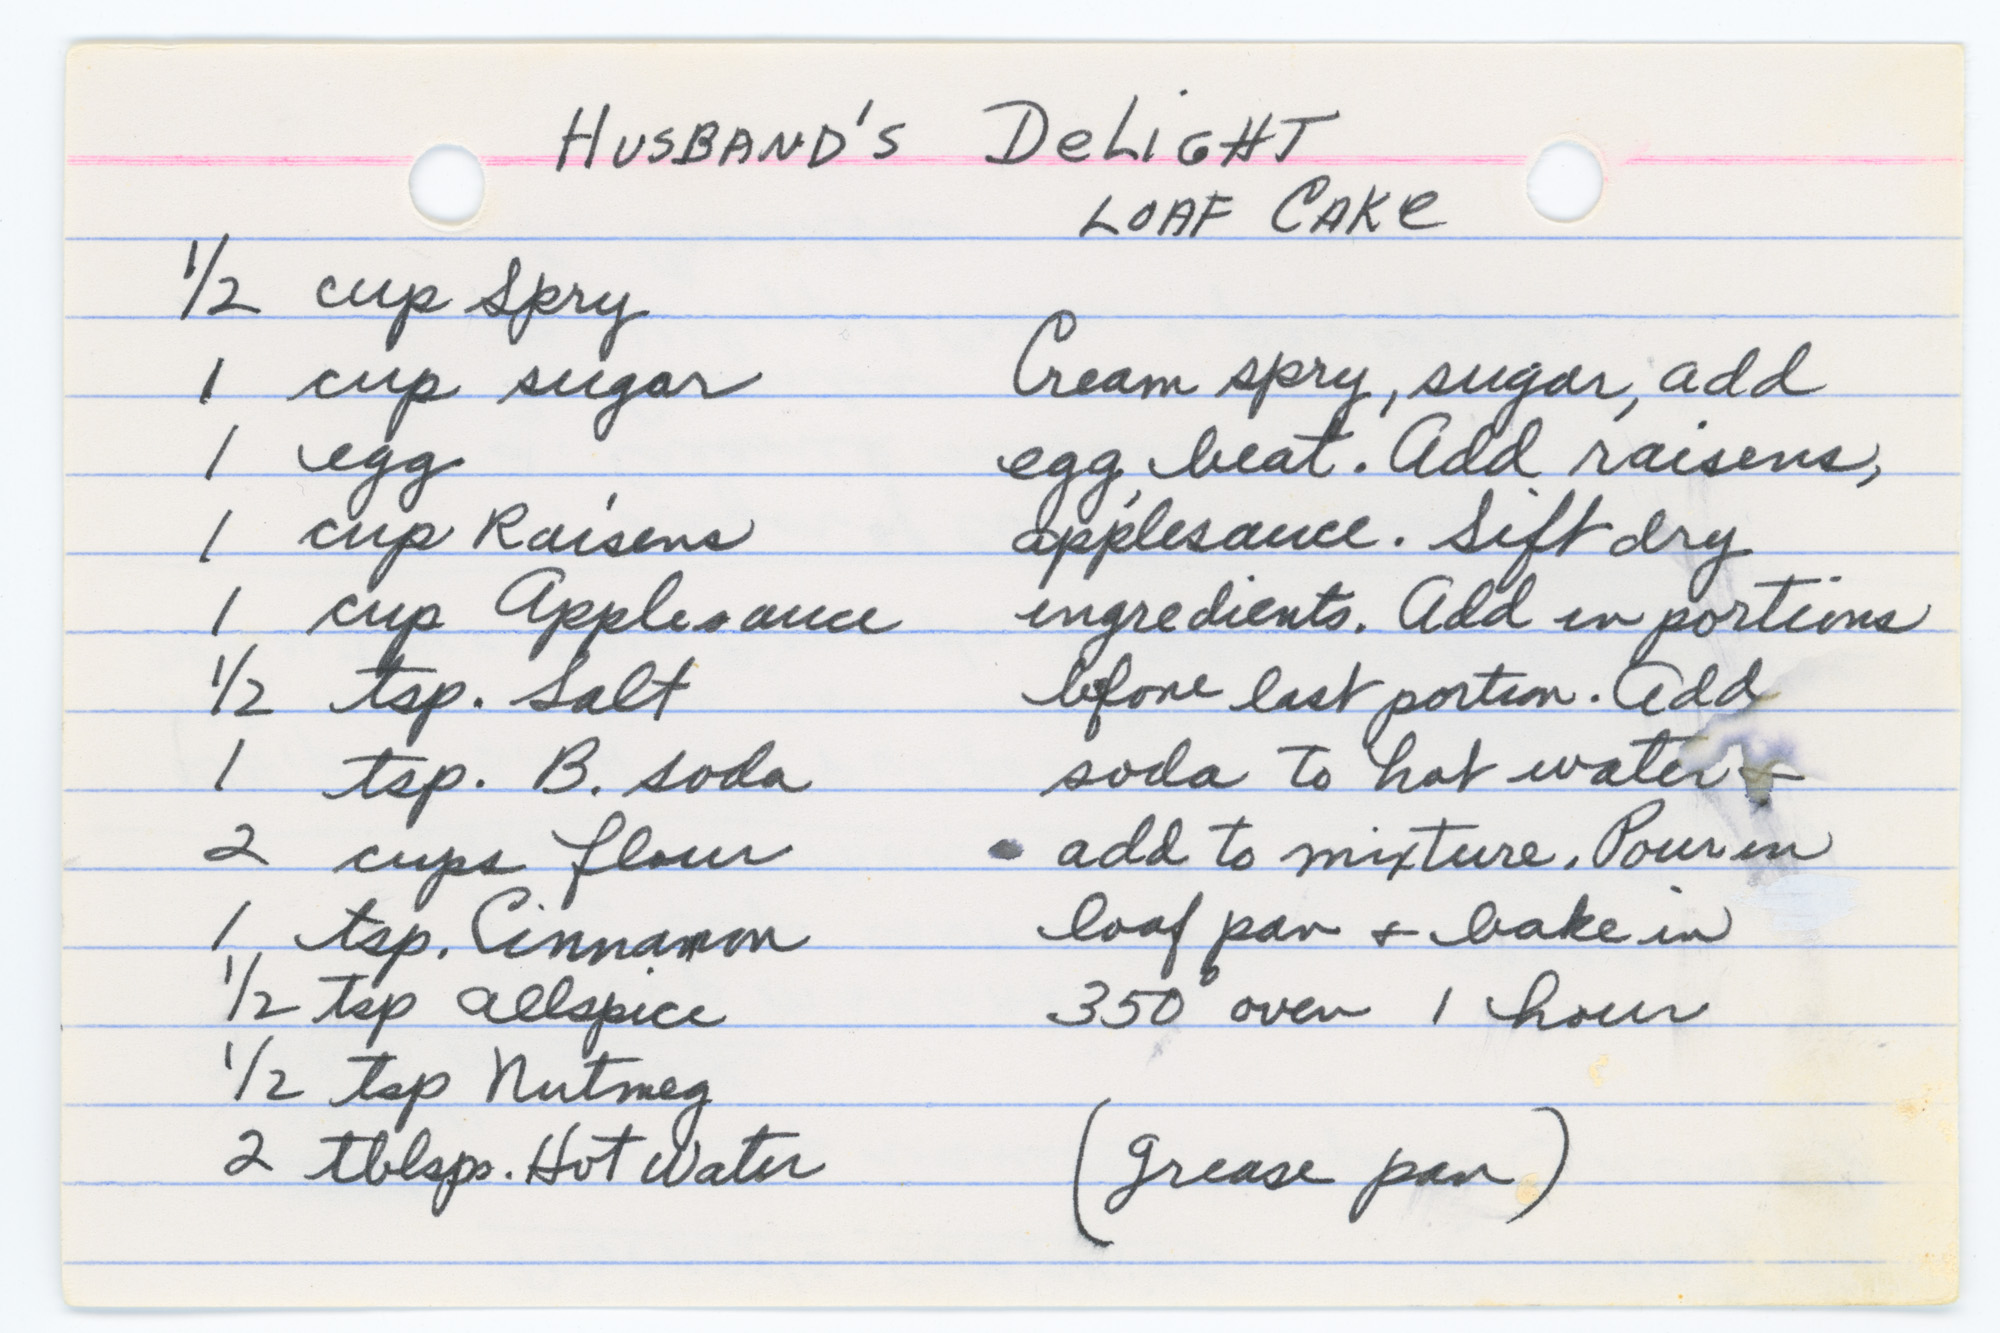 HUSBAND'S DeLiGHT
LOAF CAKe
1/2 cup Spry
1 cup sugar
1 egg
1 cup Raisens
1 cup Applesauce
1/2 tsp. Salt
1 tsp. B. soda
2 cups flour
1 tsp. Cinnamon
1/2 tsp allspice
1/2 tsp Nutmeg
2 tblsps. Hot Water
Cream spry, sugar, add
egg, beat. Add raisens,
applesauce. Sift dry
ingredients. Add in portions
before last portion. Add
soda to hot water +
add to mixture. Pour in
loaf pan + bake in
350° oven 1 hour
(grease pan)